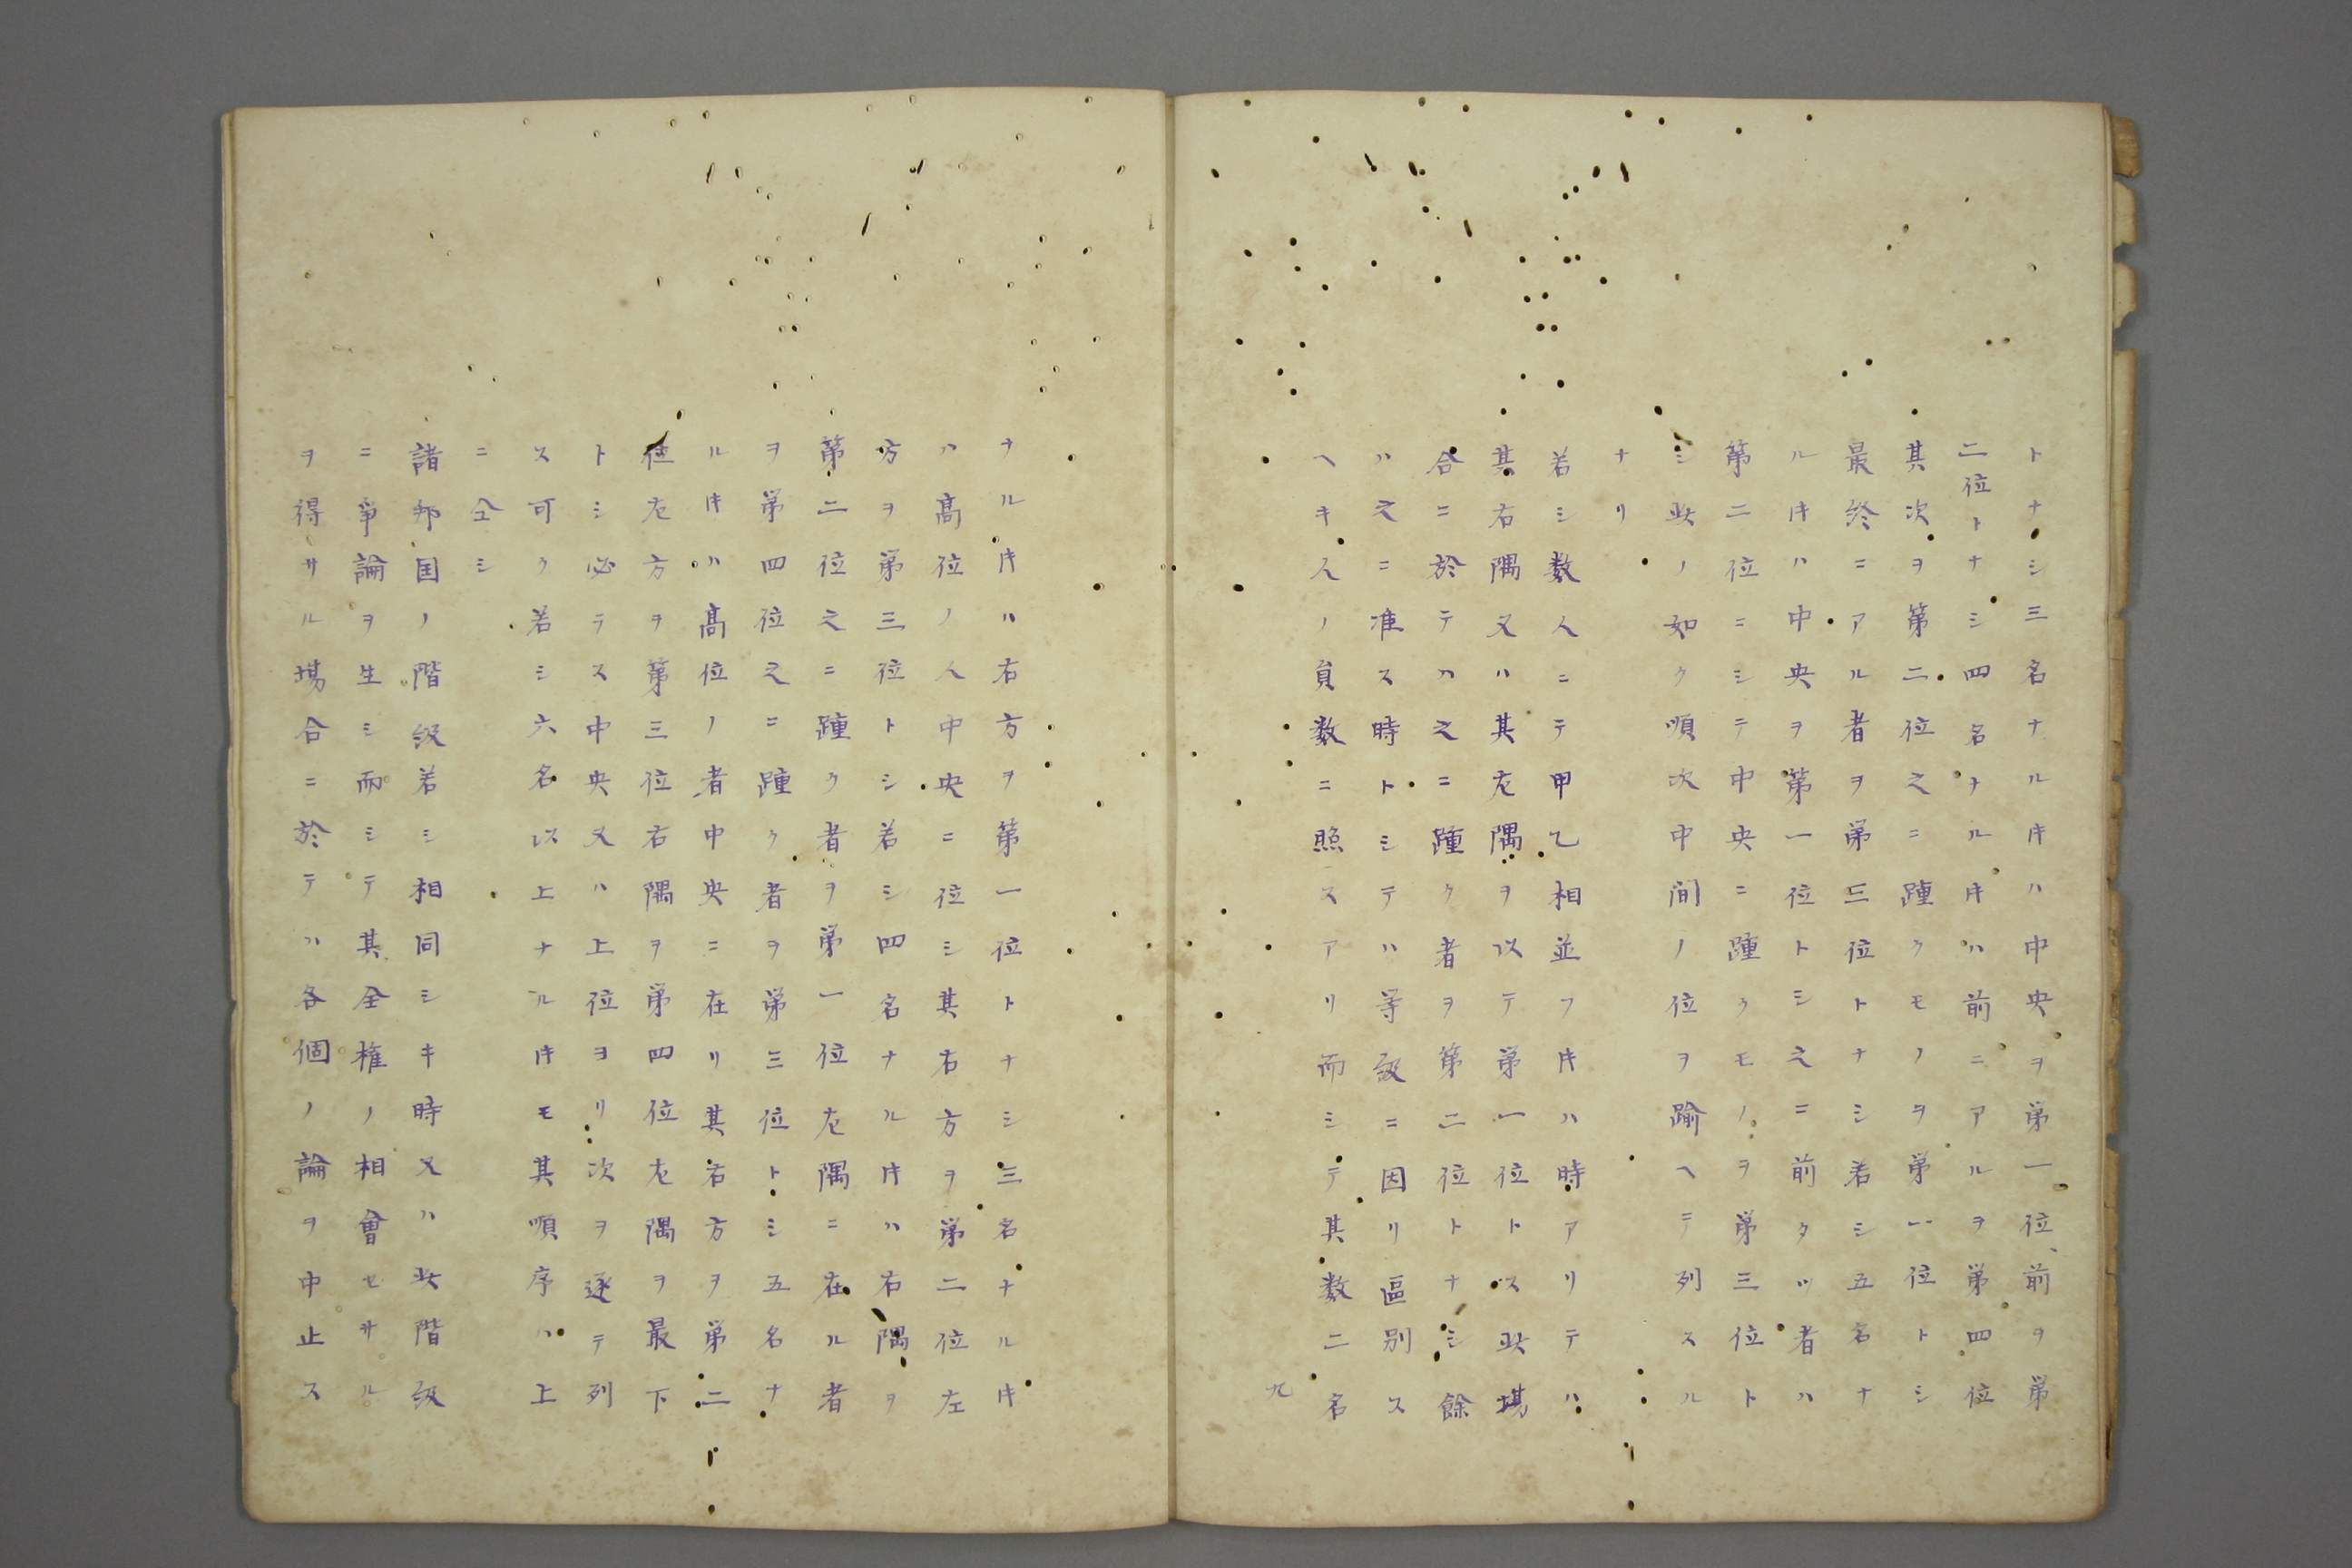 トナシ三名ナルキハ中央ヲ第一位、前ヲ第
二位トナシ四名ナルキハ前ニアルヲ第四位
其次ヲ第二位之ニ踵クモノヲ第一位トシ
最終ニアル者ヲ第三位トナシ若シ五名ナ
ルキハ中央ヲ第一位トシ之ニ前タツ者ハ
第二位ニシテ中央ニ踵クモノヲ第三位ト
シ此ノ如ク順次中間ノ位ヲ踰ヘテ列スル
ナリ
若シ数人ニテ甲乙相並フキハ時アリテハ
其右隅又ハ其左隅ヲ以テ第一位トス此場
合ニ於テハ之ニ踵ク者ヲ第二位トナシ餘
ハ之ニ准ス時トシテハ等級ニ因リ區別ス
ヘキ人ノ員数ニ照スアリ而シテ其数二名
九
ナルキハ右方ヲ第一位トナシ三名ナルキ
ハ高位ノ人中央ニ位シ其右方ヲ第二位左
方ヲ第三位トシ若シ四名ナルキハ右隅ヲ
第二位之ニ踵ク者ヲ第一位左隅ニ在ル者
ヲ第四位之ニ踵ク者ヲ第三位トシ五名ナ
ルキハ高位ノ者中央ニ在リ其右方ヲ第二
位左方ヲ第三位右隅ヲ第四位左隅ヲ最下
トシ必テス中央又ハ上位ヨリ次ヲ逐テ列
ス可ク若シ六名以上ナルキモ其順序ハ上
ニ仝シ
諸邦国ノ階級若シ相同シキ時又ハ此階級
ニ爭論ヲ生シ而シテ其全権ノ相會セサル
ヲ得サル場合ニ於テハ各個ノ論ヲ中止ス